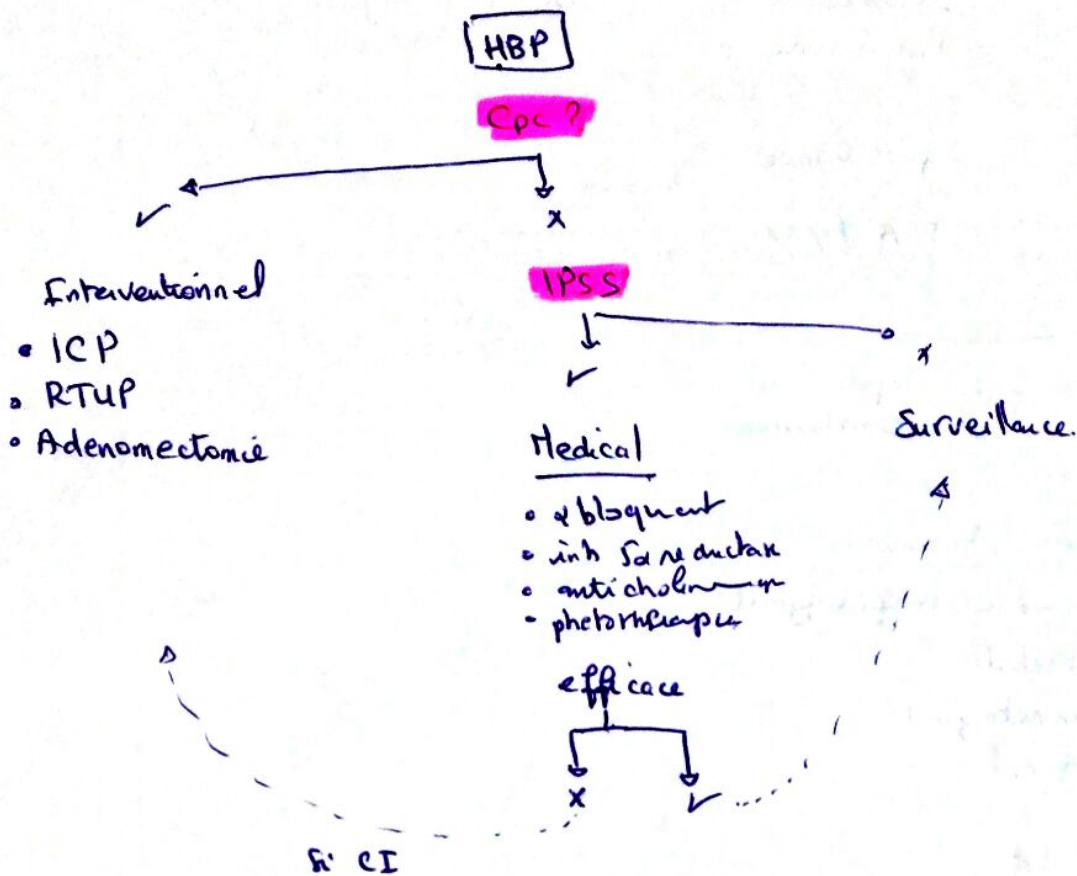 HBP
Cpc ?
✓
x
Interventionnel
• ICP
• RTUP
• Adenomectomie
IPSS
✓
x
Medical
• α bloquant
• inh 5α reductase
• anticholin
• phytotherapie
Surveillance.
efficace
x
✓
Si CI